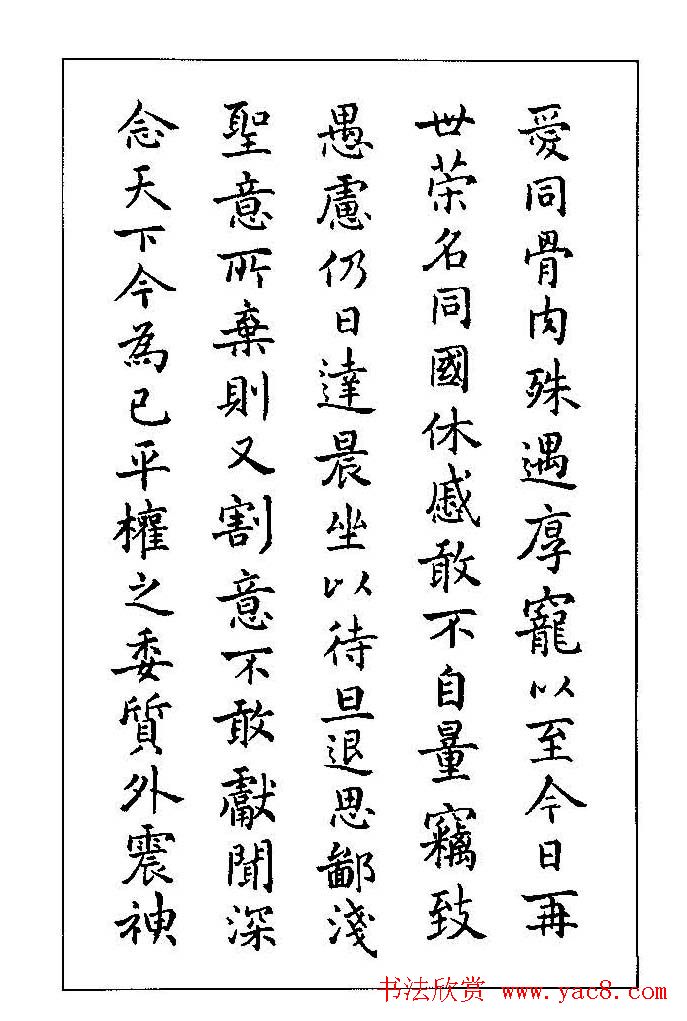 愛同骨肉殊遇厚寵以至今日再
世荣名同國休慼敢不自量竊致
愚慮仍日達晨坐以待旦退思鄙淺
聖意所棄則又割意不敢獻聞深
念天下今為已平權之委質外震神
书法欣赏 www.yac8.com